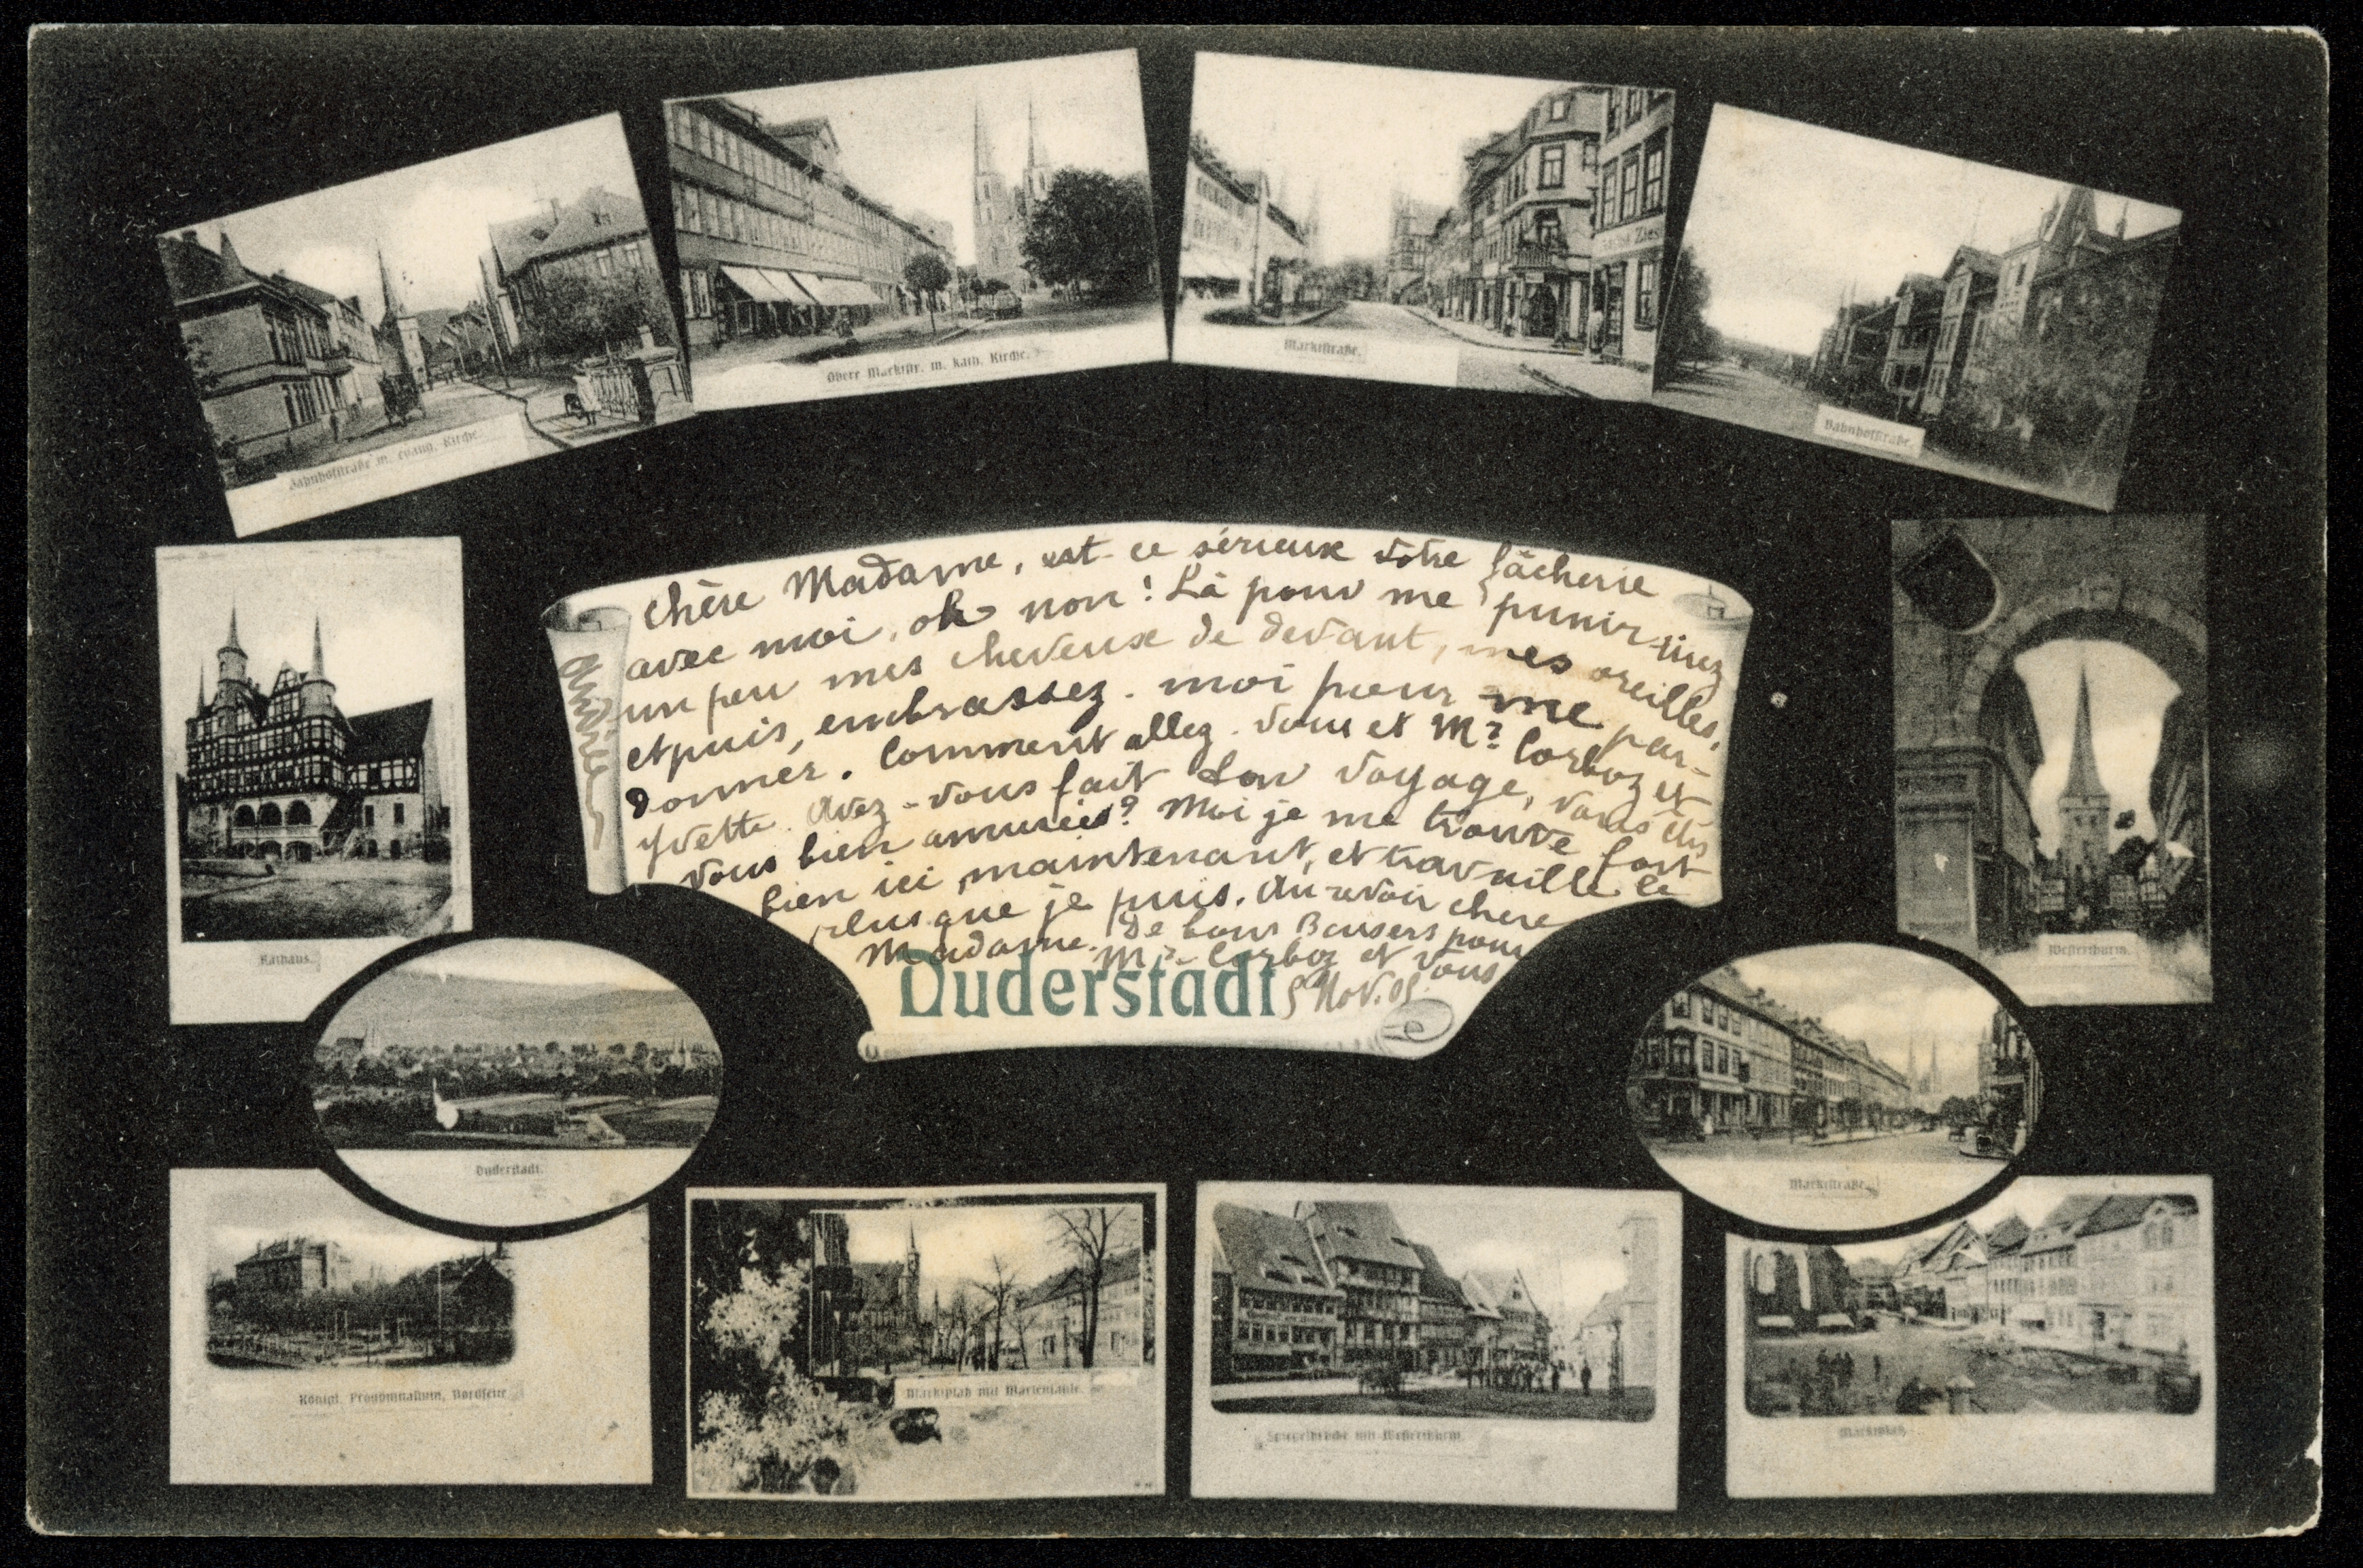 Bahnhofstraße m. evang. Kirche.
Obere Marktstr. m. kath. Kirche.
Marktstraße.
Bahnhofstraße.
chère Madame, est-ce sérieux votre fâcherie
avec moi, oh non! Là pour me punir tirez
un peu mes cheveux de devant, mes oreilles,
et puis, embrassez-moi pour me par-
donner. Comment allez-vous et Mr Corboz et
Yvette. Avez-vous fait bon voyage, vous
vous bien amusées? Moi je me trouve fort
bien ici maintenant, et travaille le
plus que je puis. Au revoir chere
Madame. De bons Baisers pour
Mr Corboz et vous
5 Nov. 05.
Andrée
Duderstadt
Rathaus.
Westerthurm.
Duderstadt.
Marktstraße.
Königl. Progymnasium, Nordseite
Marktplatz mit Mariensäule.
Spiegelbrücke mit Westerthurm
Marktplatz.